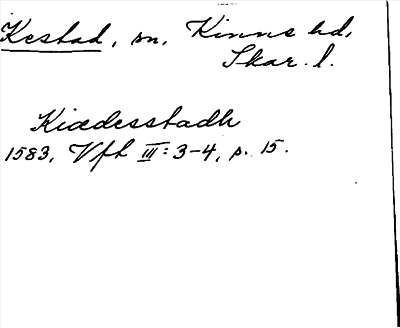 Kestad, sn, Kinne hd,
Skar. l.
Kiædesstadh
1583, Vfh III: 3-4, p. 15.